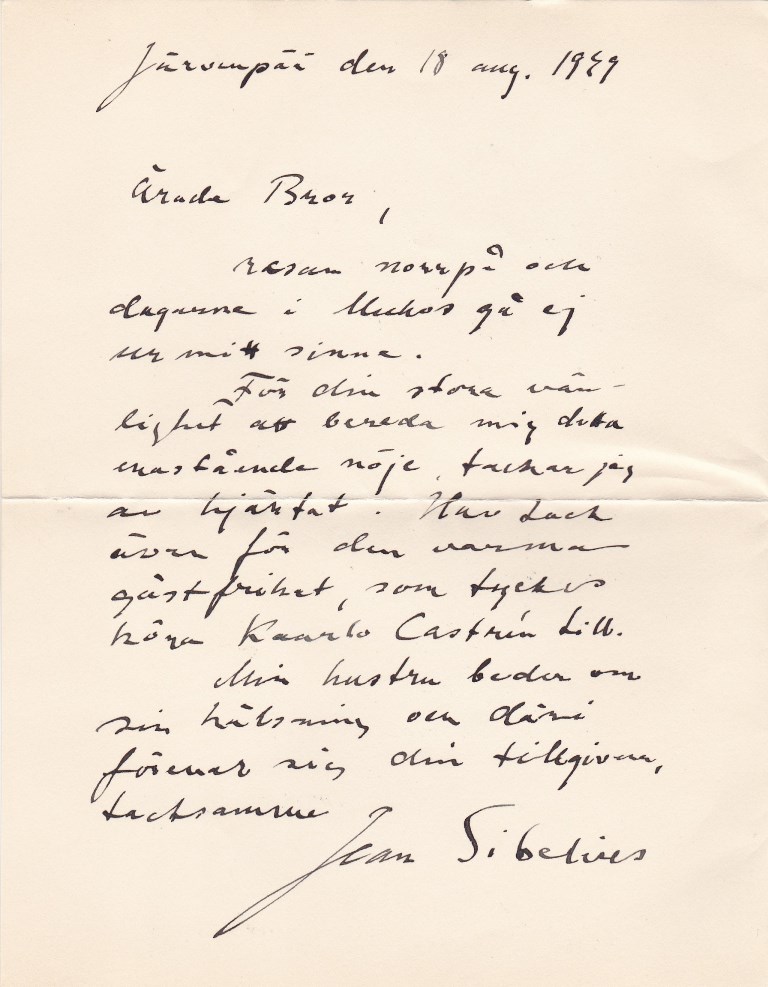 Järvenpää den 18 aug. 1949
Ärade Bror,
resan norrpå och
dagarna i Muhos gå ej
ur mitt sinne.
För din stora vän-
lighet att bereda mig detta
enastående nöje, tackar jag
av hjärtat. Hav tack
även för den varma
gästfrihet, som tyckes
höra Kaarlo Castrén till.
Min hustru beder om
sin hälsning och däri
förenar sig din tillgivne,
tacksamme
Jean Sibelius